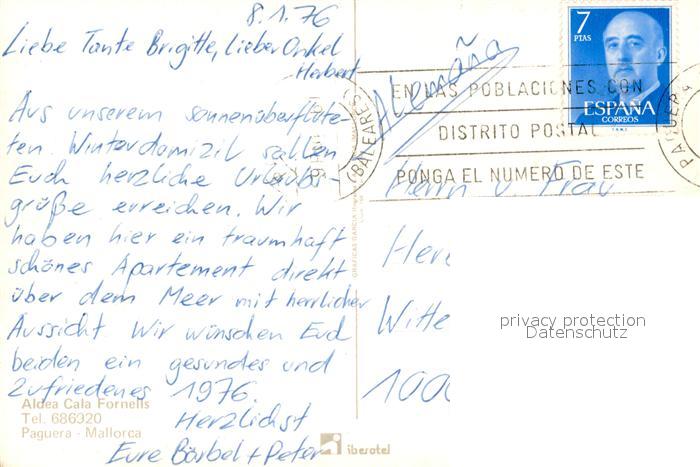 8.1.76
Liebe Tante Brigitte, lieber Onkel
Herbert
Aus unserem sonnenüberflute-
ten Winterdomizil sollen
Euch herzliche Urlaubs-
grüße erreichen. Wir
haben hier ein traumhaft
schönes Apartement direkt
über dem Meer mit herrlicher
Aussicht. Wir wünschen Euch
beiden ein gesundes und
zufriedenes 1976.
Herzlichst
Eure Bärbel + Peter
Aldea Cala Fornells
Tel. 686920
Paguera - Mallorca
iberotel
Alemaña
7
PTAS
ESPAÑA
CORREOS
EN LAS POBLACIONES CON
DISTRITO POSTAL
PONGA EL NUMERO DE ESTE
(BALEARES)
PAGUERA
Herrn u. Frau
Her
Witte
1000
privacy protection
Datenschutz